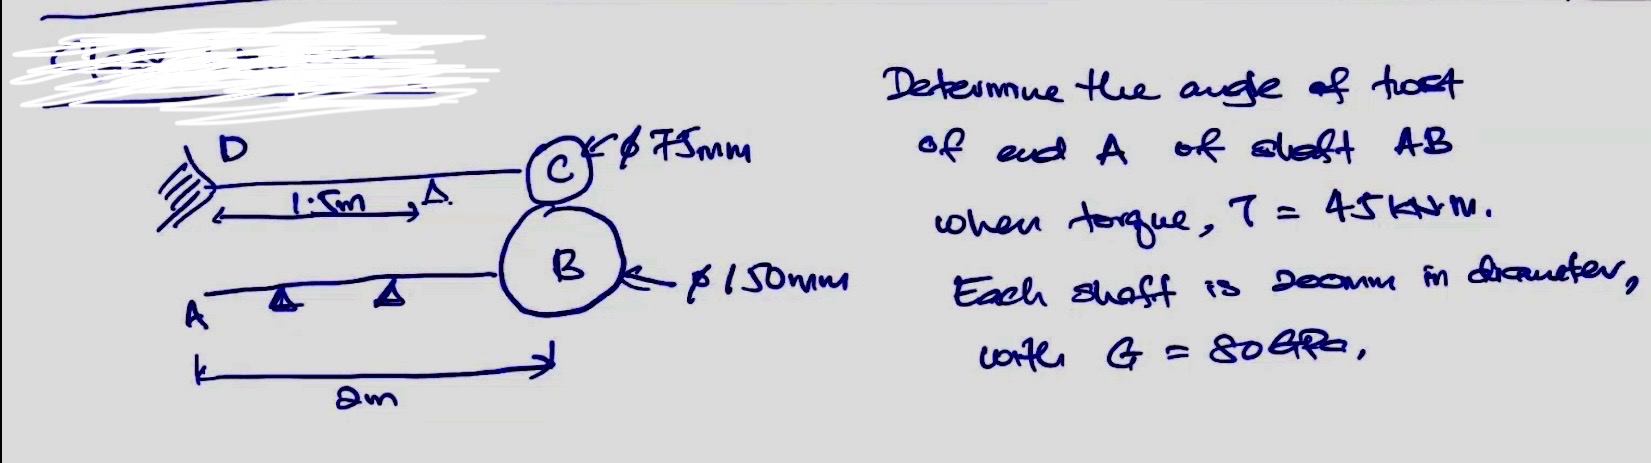 D
C
ϕ 75mm
1.5m
B
ϕ 150mm
A
2m
Determine the angle of twist
of end A of shaft AB
when torque, T = 45 kNm.
Each shaft is 200mm in diameter,
with G = 80GPa.